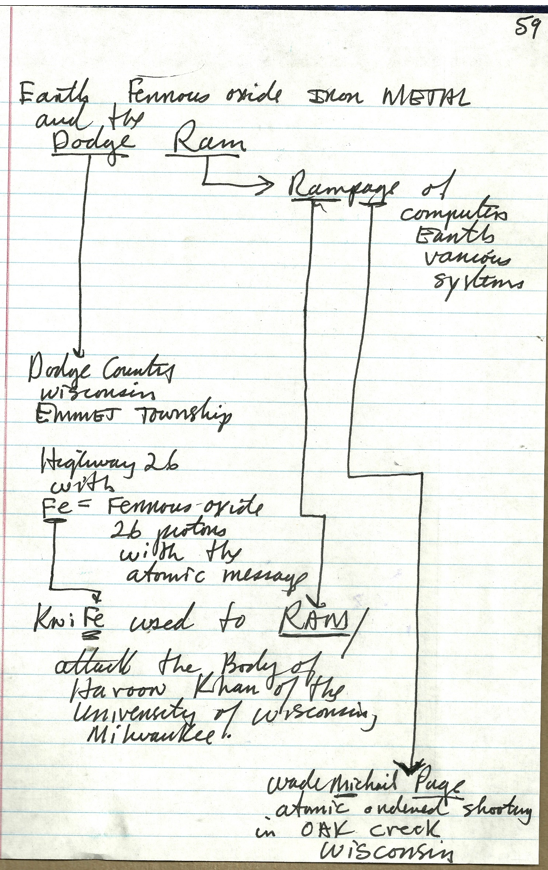 59
Earth Ferrous oxide IRon METAL
and the
Dodge Ram
Rampage of
computers
Earth
various
systems
Dodge County
wisconsin
EMMET Township
Highway 26
with
Fe = Ferrous-oxide
26 protons
with the
atomic message
KniFe used to RAM/
attack the Body of
Haroon Khan of the
University of Wisconsin,
Milwaukee.
wade Michail Page
atomic ordered shooting
in OAK creek
WISCONSIN